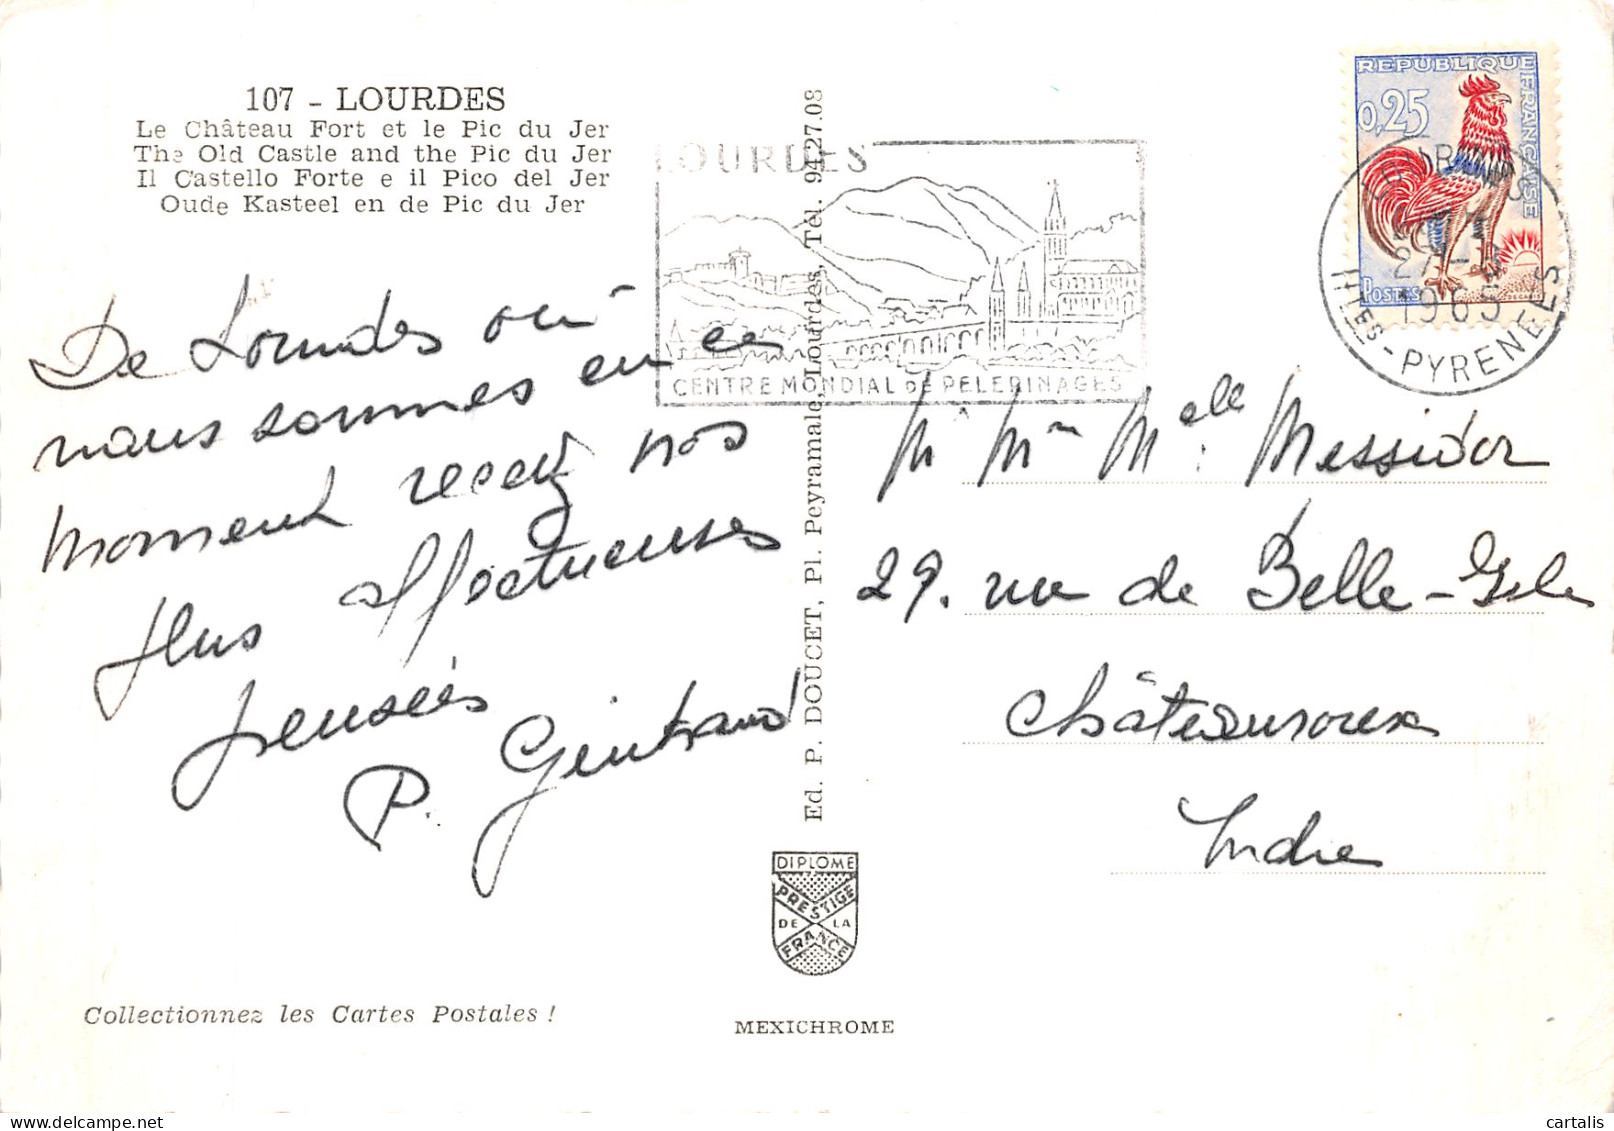 107 - LOURDES
Le Château Fort et le Pic du Jer
The Old Castle and the Pic du Jer
Il Castello Forte e il Pico del Jer
Oude Kasteel en de Pic du Jer
De Lourdes où
nous sommes en ce
moment recevez nos
plus affectueuses
pensées
P. Gintrand
Collectionnez les Cartes Postales !
Ed. P. DOUCET, Pl. Peyramale, Lourdes, Tél. 94.27.08
DIPLOME
PRESTIGE
DE LA
FRANCE
MEXICHROME
LOURDES
CENTRE MONDIAL DE PELERINAGES
REPUBLIQUE FRANÇAISE
0,25
POSTES
27 -
1965
HTES - PYRENEES
M Mme Melle : Messidor
29. rue de Belle-Isle
Châteauroux
Indre
cartalis
www.delcampe.net